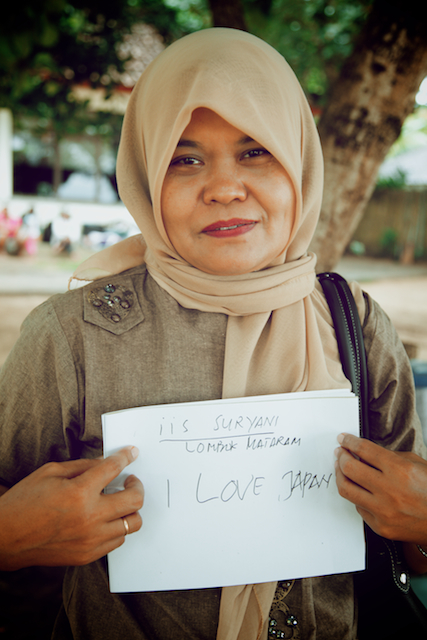 iis SURYANI
LOMBOK MATARAM
I LOVE JAPAN